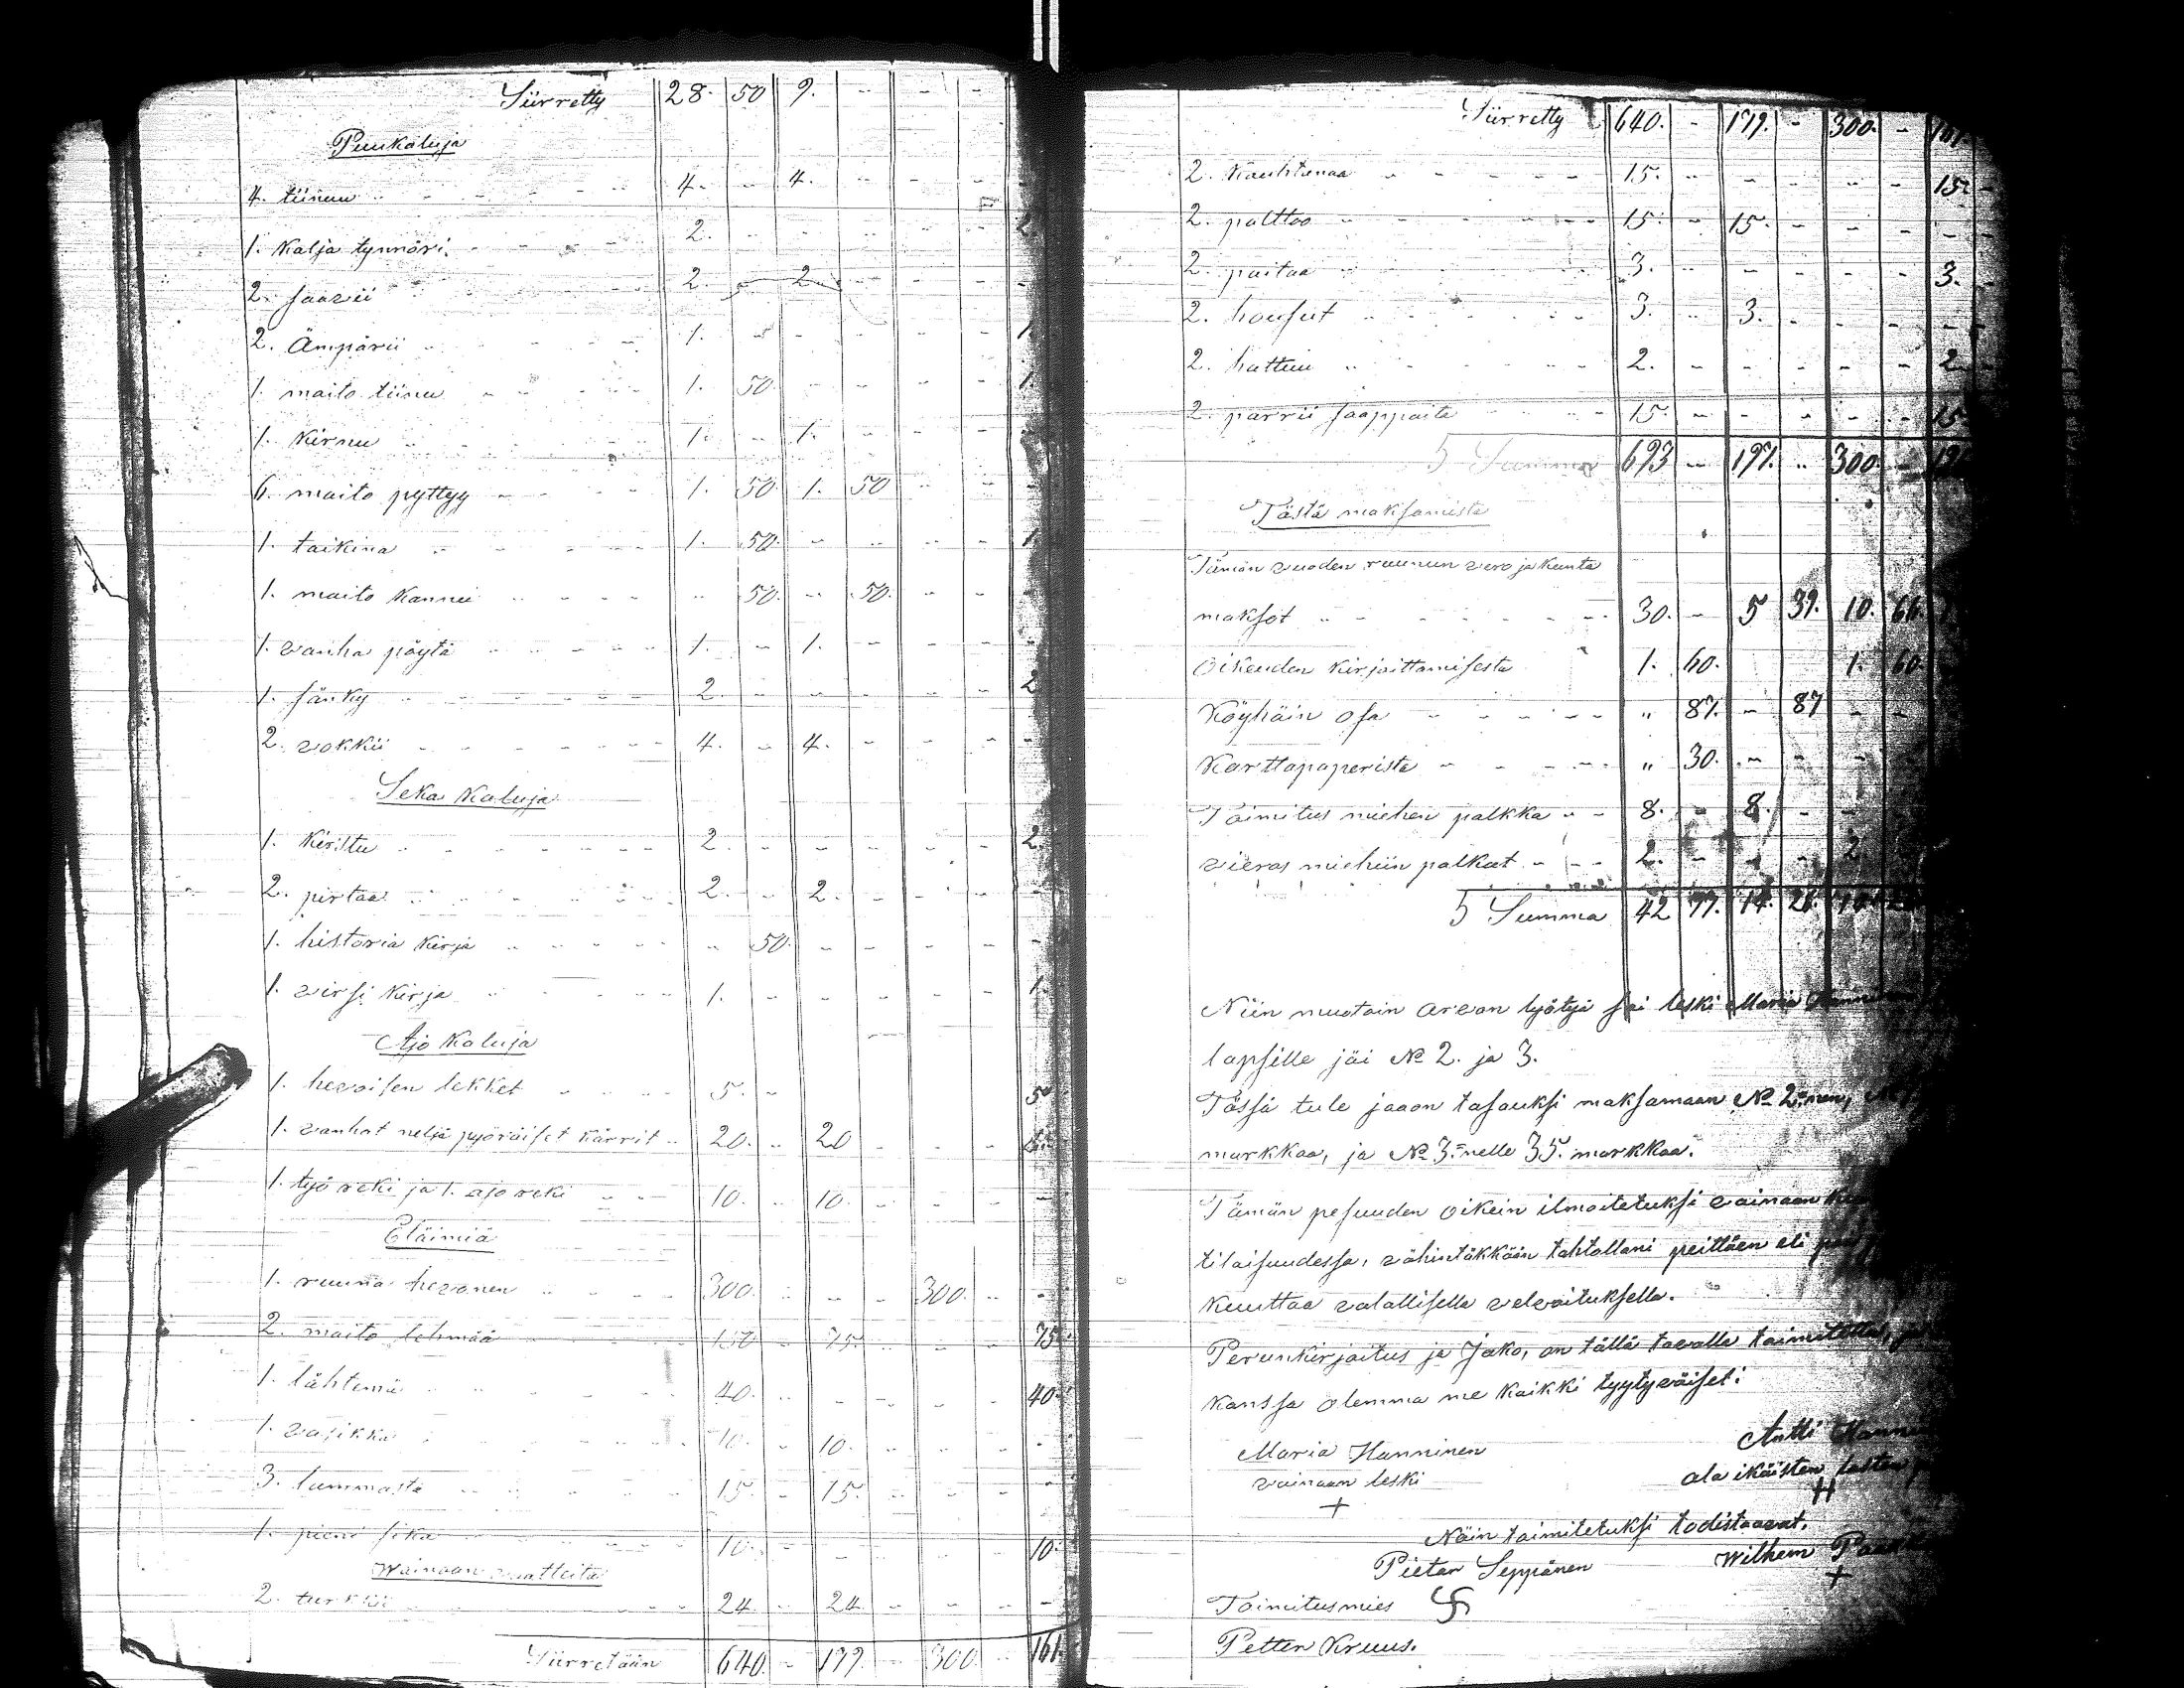 Siirretty 28. 50 9. - - -
Puukaluja
4. tiinuu - - 4. - 4. - - -
1. Kalja tynnöri. - - 2. - - - - - 2.
2. saavii 2. - 2. - - -
2. Ämpärii - - 1. - - - - - 1.
1. maito tiinu - - 1. 50. - - - - 1.
1. Kirnu - - 1. - 1. - - -
6. maito pyttyy - - 1. 50. 1. 50 - -
1. taikina - - 1. 50. - - - - 1.
1. maito Kannu - - - 50. - 50. - -
1. vanha pöytä - - 1. - 1. - - -
1. sänky - - 2. - - - - - 2.
2. vokkii - - 4. - 4. - - -
Seka Kaluja
1. Kirstu - - 2. - - - - - 2.
2. pirtaa - - 2. - 2. - - -
1. historia Kirja - - - 50. - - - -
1. virsi Kirja - - 1. - - - - - 1.
Ajo Kaluja
1. hevoisen lekket - - 5. - 5.
1. vanhat neljä pyöräiset Kärrit - 20. - 20 - - -
1. työ reki ja 1. ajo reki - - 10. - 10. - - -
Eläimiä
1. ruuna hevonen - - 300. - - - 300. - -
2. maito lehmää - - 150. - 75. - - - 75.
1. lähtemä - - 40. - - - - - 40.
1. vasikka - - 10. - 10. - - -
3. lammasta - - 15. - 15. - - -
1. pieni sika - - 10. - - - - - 10.
Wainaan vaatteita
2. turkkii - - 24. - 24. - - -
Siirretään 640. - 179. - 300. - 161.
Siirretty 640. - 179. - 300. - 161
2. Kauhtanaa - - 15. - - - - - 15. -
2. palttoo - - 15. - 15. - - - - -
2. paitaa - - 3. - - - - - 3. -
2. housut - - 3. - 3. - - - - -
2. hattuu - - 2. - - - - - 2. -
2. parrii saappaita - - 15. - - - - - 15.
Summa 693 - 197. - 300 -
Tästä maksamista
Tämän vuoden ruunun vero ja Kunta
maksot - - 30. - 5 39. 10. 66.
Oikeuden Kirjoittamisesta 1. 60. 1. 60
Köyhäin osa - - " 87. - 87 - -
Karttapaperista - - " 30. - - - -
Toimitus miehen palkka - - 8. - 8. - -
vieras miehiin palkat - - 2. - - - 2.
Summa 42 77. 14. 26.
Niin muotoin arvon lyötyä sai leski Maria
lapsille jäi No 2. ja 3.
Tässä tule jaaon tasauksi maksamaan No 2:nen,
markkaa, ja No 3:nelle 35. markkaa.
Tämän pesuuden oikein ilmoitetuksi vainaan
tilaisuudessa, vähintäkkään tahtollani peittäen eli
Kuuttaa valallisella velvoituksella.
Perunkirjoitus ja Jako, on tällä tavalla toimitettu,
Kanssa olemma me Kaikki tyytyväiset:
Maria Hanninen Antti
vainaan leski ala ikäisten lasten
Näin toimitetuksi todistaavat.
Pietar Seppänen Wilhem
Toimitusmies
Petter Kruus.